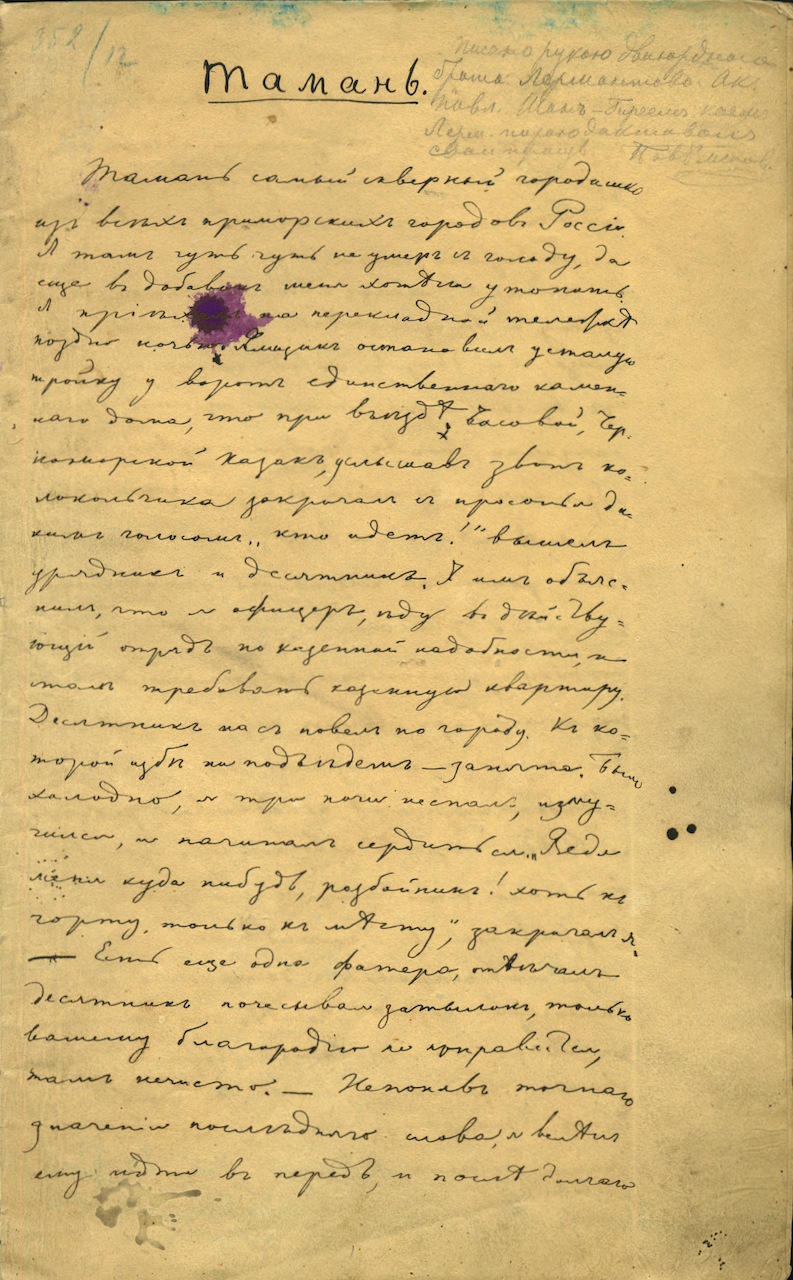 352/12
Тамань.
Писано рукою двоюроднаго
брата Лермонтова Ак.
Павл. Шанъ-Гиреемъ, коему
Лерм.
Тамань самый скверный городишко
изъ всѣхъ приморскихъ городовъ Россіи.
Я тамъ чуть чуть не умеръ съ голоду, да
еще въ добавокъ меня хотѣли утопить.
Я пріѣхалъ на перекладной тележкѣ
поздно ночью. Ямщикъ остановилъ усталую
тройку у воротъ единственнаго камен-
наго дома, что при въѣздѣ. Часовой, Чер-
номорской казакъ, услышавъ звонъ ко=
локольчика закричалъ съ просонья ди=
кимъ голосомъ „кто идетъ!“ вышелъ
урядникъ и десятникъ. Я имъ объяс-
нилъ, что я офицеръ, ѣду въ дѣйству=
ющій отрядъ по казенной надобности, и
сталъ требовать казенную квартиру.
Десятникъ насъ повелъ по городу. Къ ко=
торой избѣ ни подъѣдемъ — занята. Было
холодно, я три ночи неспалъ, изму=
чился, и начиналъ сердиться. „Веди
меня куда нибудь, разбойникъ! хоть къ
чорту, только къ мѣсту“, закричалъ я.
— Есть еще одна фатера, отвѣчалъ
десятникъ почесывая затылокъ, только
вашему благородію не понравится,
тамъ нечисто. — Непонявъ точнаго
значенія послѣдняго слова, я велѣлъ
ему идти въ передъ, и послѣ долгаго